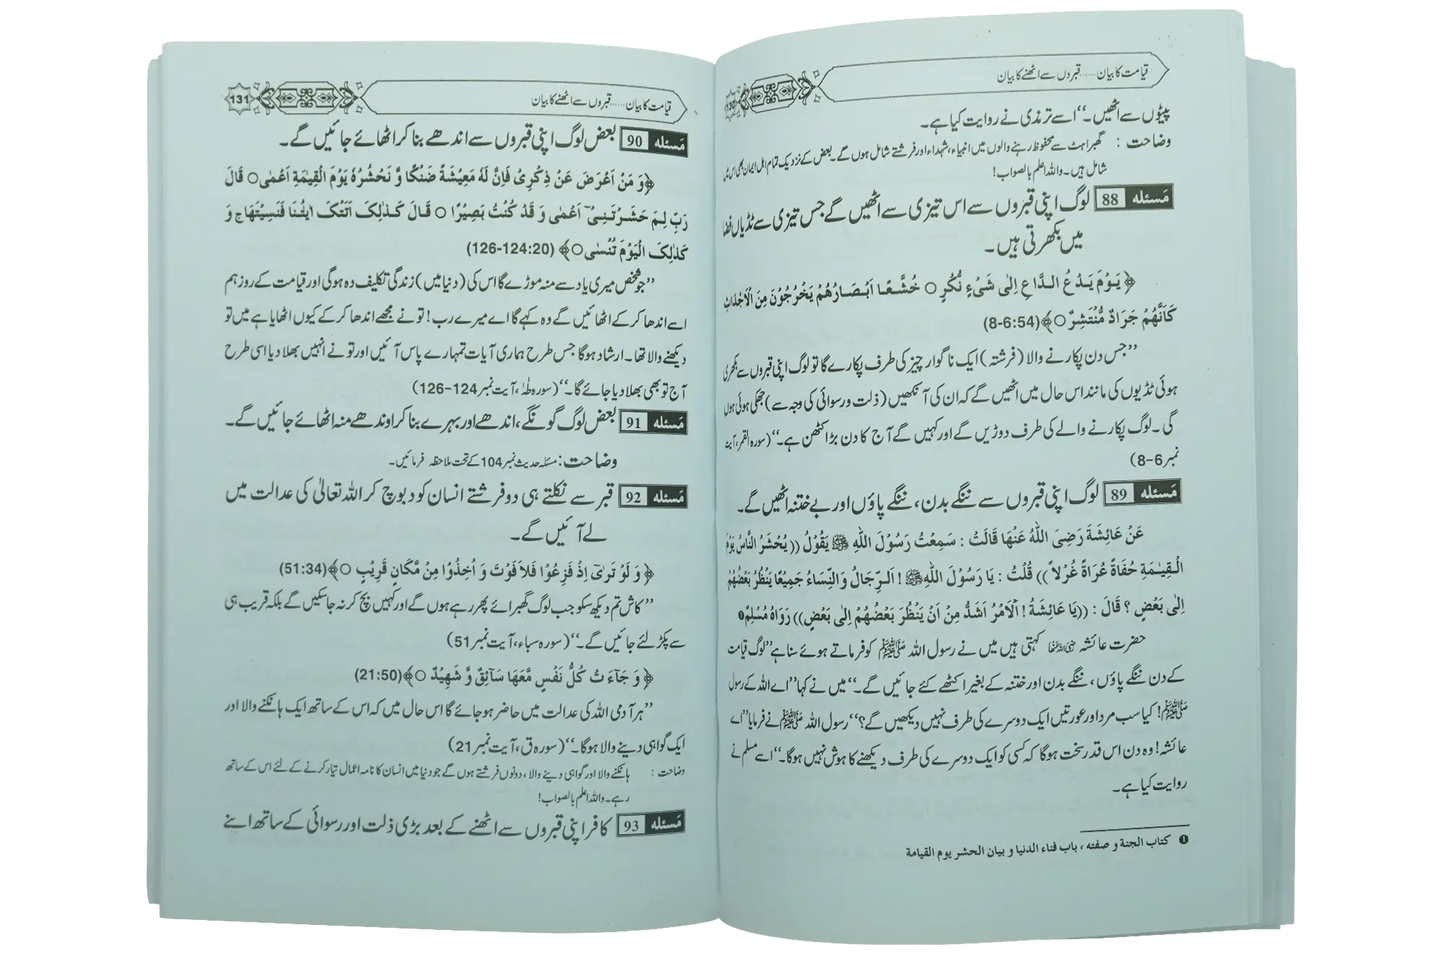 قیامت کا بیان.....قبروں سے اٹھنے کا بیان
130
پیٹوں سے اٹھیں۔‘‘ اسے ترمذی نے روایت کیا ہے۔
وضاحت : گھبراہٹ سے محفوظ رہنے والوں میں انبیاء، شہداء اور فرشتے شامل ہوں گے۔ بعض کے نزدیک تمام اہل ایمان بھی اس میں
شامل ہیں۔ واللہ اعلم بالصواب!
مَسئلہ 88 لوگ اپنی قبروں سے اس تیزی سے اٹھیں گے جس تیزی سے ٹڈیاں فضا
میں بکھرتی ہیں۔
﴿یَوْمَ یَدْعُ الدَّاعِ اِلٰی شَیْءٍ نُّکُرٍ ○ خُشَّعًا اَبْصَارُهُمْ یَخْرُجُوْنَ مِنَ الْاَجْدَاثِ
کَاَنَّهُمْ جَرَادٌ مُّنْتَشِرٌ ○﴾(8-6:54)
’’جس دن پکارنے والا (فرشتہ) ایک ناگوار چیز کی طرف پکارے گا تو لوگ اپنی قبروں سے بکھری
ہوئی ٹڈیوں کی مانند اس حال میں اٹھیں گے کہ ان کی آنکھیں (ذلت و رسوائی کی وجہ سے) جھکی ہوئی ہوں
گی۔ لوگ پکارنے والے کی طرف دوڑیں گے اور کہیں گے آج کا دن بڑا کٹھن ہے۔‘‘ (سورہ القمر، آیت
نمبر 6-8)
مَسئلہ 89 لوگ اپنی قبروں سے ننگے بدن، ننگے پاؤں اور بے ختنہ اٹھیں گے۔
عَنْ عَائِشَةَ رَضِیَ اللّٰهُ عَنْهَا قَالَتْ : سَمِعْتُ رَسُوْلَ اللّٰهِ ﷺ یَقُوْلُ (( یُحْشَرُ النَّاسُ یَوْمَ
الْقِیٰمَةِ حُفَاةً عُرَاةً غُرْلًا )) قُلْتُ : یَا رَسُوْلَ اللّٰهِ ﷺ ! اَلرِّجَالُ وَالنِّسَاءُ جَمِیْعًا یَنْظُرُ بَعْضُهُمْ
اِلٰی بَعْضٍ ؟ قَالَ : ((یَا عَائِشَةُ ! اَلْاَمْرُ اَشَدُّ مِنْ اَنْ یَنْظُرَ بَعْضُهُمْ اِلٰی بَعْضٍ)) رَوَاهُ مُسْلِمٌ❶
حضرت عائشہ رضی اللہ عنہا کہتی ہیں میں نے رسول اللہ ﷺ کو فرماتے ہوئے سنا ہے ’’لوگ قیامت
کے دن ننگے پاؤں، ننگے بدن اور ختنہ کے بغیر اکٹھے کئے جائیں گے۔‘‘ میں نے کہا ’’اے اللہ کے رسول
ﷺ! کیا سب مرد اور عورتیں ایک دوسرے کی طرف نہیں دیکھیں گے؟‘‘ رسول اللہ ﷺ نے فرمایا ’’اے
عائشہ! وہ دن اس قدر سخت ہوگا کہ کسی کو ایک دوسرے کی طرف دیکھنے کا ہوش نہیں ہوگا۔‘‘ اسے مسلم نے
روایت کیا ہے۔
❶ کتاب الجنة و صفته ، باب فناء الدنیا و بیان الحشر یوم القیامة
قیامت کا بیان.....قبروں سے اٹھنے کا بیان
131
مَسئلہ 90 بعض لوگ اپنی قبروں سے اندھے بنا کر اٹھائے جائیں گے۔
﴿وَ مَنْ اَعْرَضَ عَنْ ذِکْرِیْ فَاِنَّ لَهٗ مَعِیْشَةً ضَنْکًا وَّ نَحْشُرُهٗ یَوْمَ الْقِیٰمَةِ اَعْمٰی○ قَالَ
رَبِّ لِمَ حَشَرْتَنِیْٓ اَعْمٰی وَ قَدْ کُنْتُ بَصِیْرًا ○ قَالَ کَذٰلِکَ اَتَتْکَ اٰیٰتُنَا فَنَسِیْتَهَا ج وَ
کَذٰلِکَ الْیَوْمَ تُنْسٰی○﴾ (126-124:20)
’’جو شخص میری یاد سے منہ موڑے گا اس کی (دنیا میں) زندگی تکلیف دہ ہوگی اور قیامت کے روز ہم
اسے اندھا کر کے اٹھائیں گے وہ کہے گا اے میرے رب! تو نے مجھے اندھا کر کے کیوں اٹھایا ہے میں تو
دیکھنے والا تھا۔ ارشاد ہوگا جس طرح ہماری آیات تمہارے پاس آئیں اور تو نے انہیں بھلا دیا اسی طرح
آج تو بھی بھلا دیا جائے گا۔‘‘ (سورہ طہٰ، آیت نمبر 124-126)
مَسئلہ 91 بعض لوگ گونگے، اندھے اور بہرے بنا کر اوندھے منہ اٹھائے جائیں گے۔
وضاحت: مسئلہ حدیث نمبر 104 کے تحت ملاحظہ فرمائیں۔
مَسئلہ 92 قبر سے نکلتے ہی دو فرشتے انسان کو دبوچ کر اللہ تعالیٰ کی عدالت میں
لے آئیں گے۔
﴿ وَ لَوْ تَرٰیٓ اِذْ فَزِعُوْا فَلاَ فَوْتَ وَ اُخِذُوْا مِنْ مَّکَانٍ قَرِیْبٍ ○﴾(51:34)
’’کاش تم دیکھ سکو جب لوگ گھبرائے پھر رہے ہوں گے اور کہیں بچ کر نہ جا سکیں گے بلکہ قریب ہی
سے پکڑ لئے جائیں گے۔‘‘ (سورہ سباء، آیت نمبر 51)
﴿ وَ جَآءَتْ کُلُّ نَفْسٍ مَّعَهَا سَآئِقٌ وَّ شَهِیْدٌ ○﴾(21:50)
’’ہر آدمی اللہ کی عدالت میں حاضر ہو جائے گا اس حال میں کہ اس کے ساتھ ایک ہانکنے والا اور
ایک گواہی دینے والا ہوگا۔‘‘ (سورہ ق، آیت نمبر 21)
وضاحت : ہانکنے والا اور گواہی دینے والا، دونوں فرشتے ہوں گے جو دنیا میں انسان کا نامہ اعمال تیار کرنے کے لئے اس کے ساتھ
رہے۔ واللہ اعلم بالصواب!
مَسئلہ 93 کافر اپنی قبروں سے اٹھنے کے بعد بڑی ذلت اور رسوائی کے ساتھ اپنے